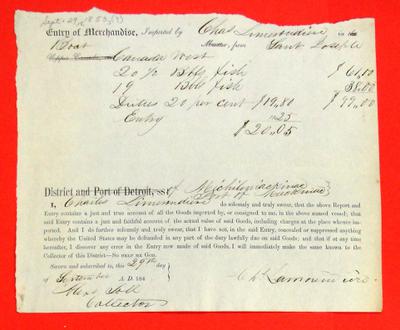 Sept. 29, 1853(?)
Entry of Merchandise, Imported by Chas Limoundiere in the
1 Boat Master, from Saint Joseph
Upper Canada, Canada West
20 ½ Bbls fish $61,10
19 Bbls fish 38,00
Duties 20 per cent $19.80 $99,00
Entry 25
$20.05
District and Port of Detroit, ss of Michilimackinac
Port of Mackinac
I, Charles Limoundiere do solemnly and truly swear, that the above Report and
Entry contains a just and true account of all the Goods imported by, or consigned to me, in the above named vessel; that
said Entry contains a just and faithful account of the actual value of said Goods, including charges at the place whence im-
ported. And I do further solemnly and truly swear, that I have not, in the said Entry, concealed or suppressed anything
whereby the United States may be defrauded in any part of the duty lawfully due on said Goods; and that if at any time
hereafter, I discover any error in the Entry now made of said Goods, I will immediately make the same known to the
Collector of this District—So help me God.
Sworn and subscribed to, this 29th day
of September A. D. 184
Collector